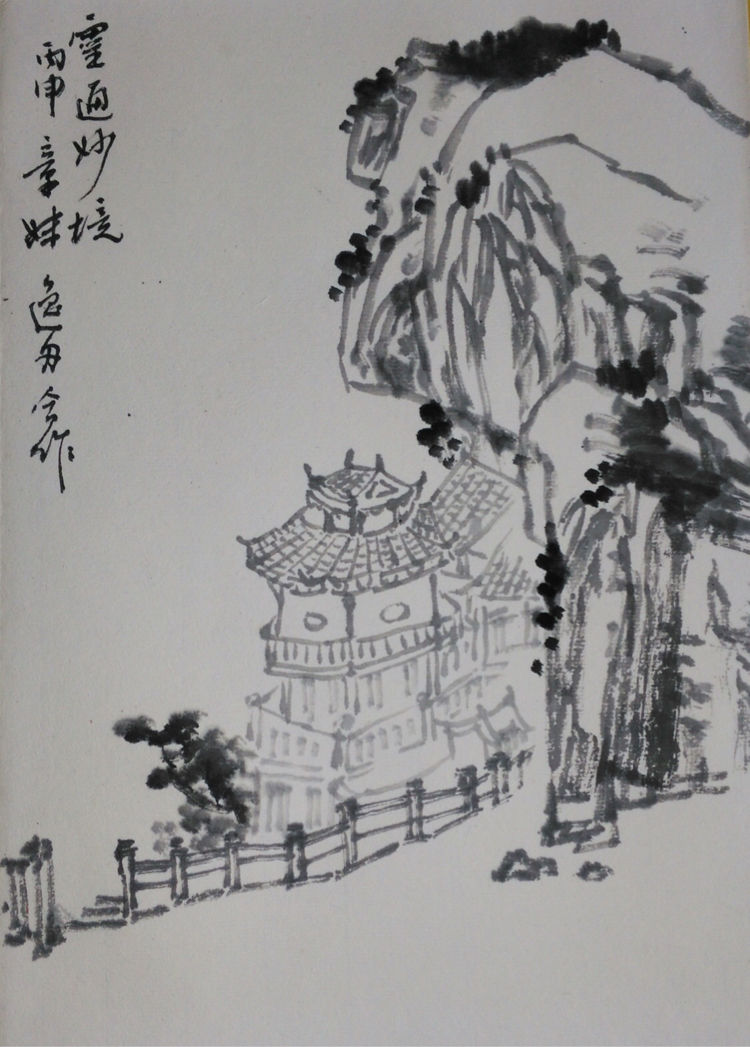 靈通妙境
丙申 章妹 逸舟合作